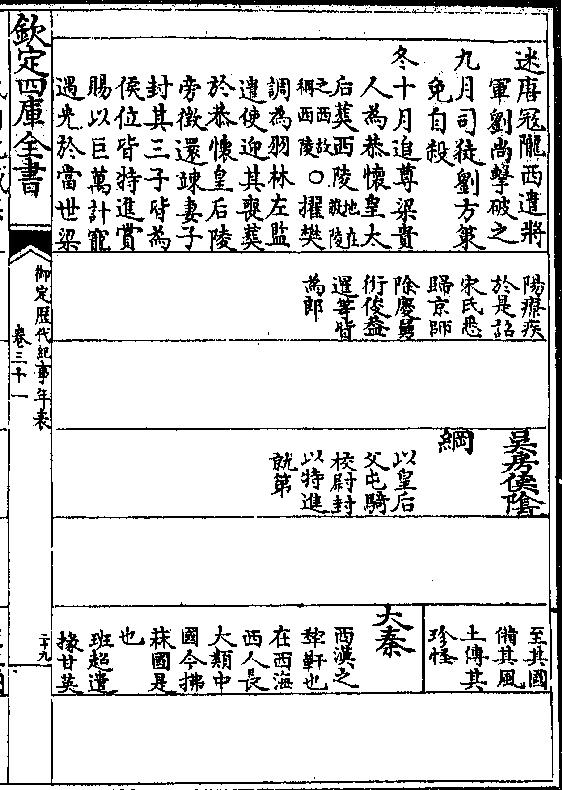 迷唐冦隴西遣将
軍劉尚擊破之
九月司徒劉方策
免自殺
冬十月追尊梁貴
人為恭懷皇太
后葬西陵地在敬陵
之西故
稱西陵○擢樊
調為羽林左監
遣使迎其喪葬
於恭懷皇后陵
旁徴還竦妻子
封其三子皆為
侯位皆特進賞
賜以巨萬計寵
遇光於當世梁
陽療疾
於是詔
宋氏悉
歸京師
除慶舅
衍俊葢
暹等皆
為郎
吴房侯隂
綱
以皇后
父屯騎
校尉封
以特進
就第
至其國
備其風
土傳其
珍怪
大秦
西漢之
犂靬也
在西海
西人長
大類中
國今拂
菻國是
也
班超遣
掾甘英
欽定四庫全書
御定歴代紀事年表
卷三十一
二十九